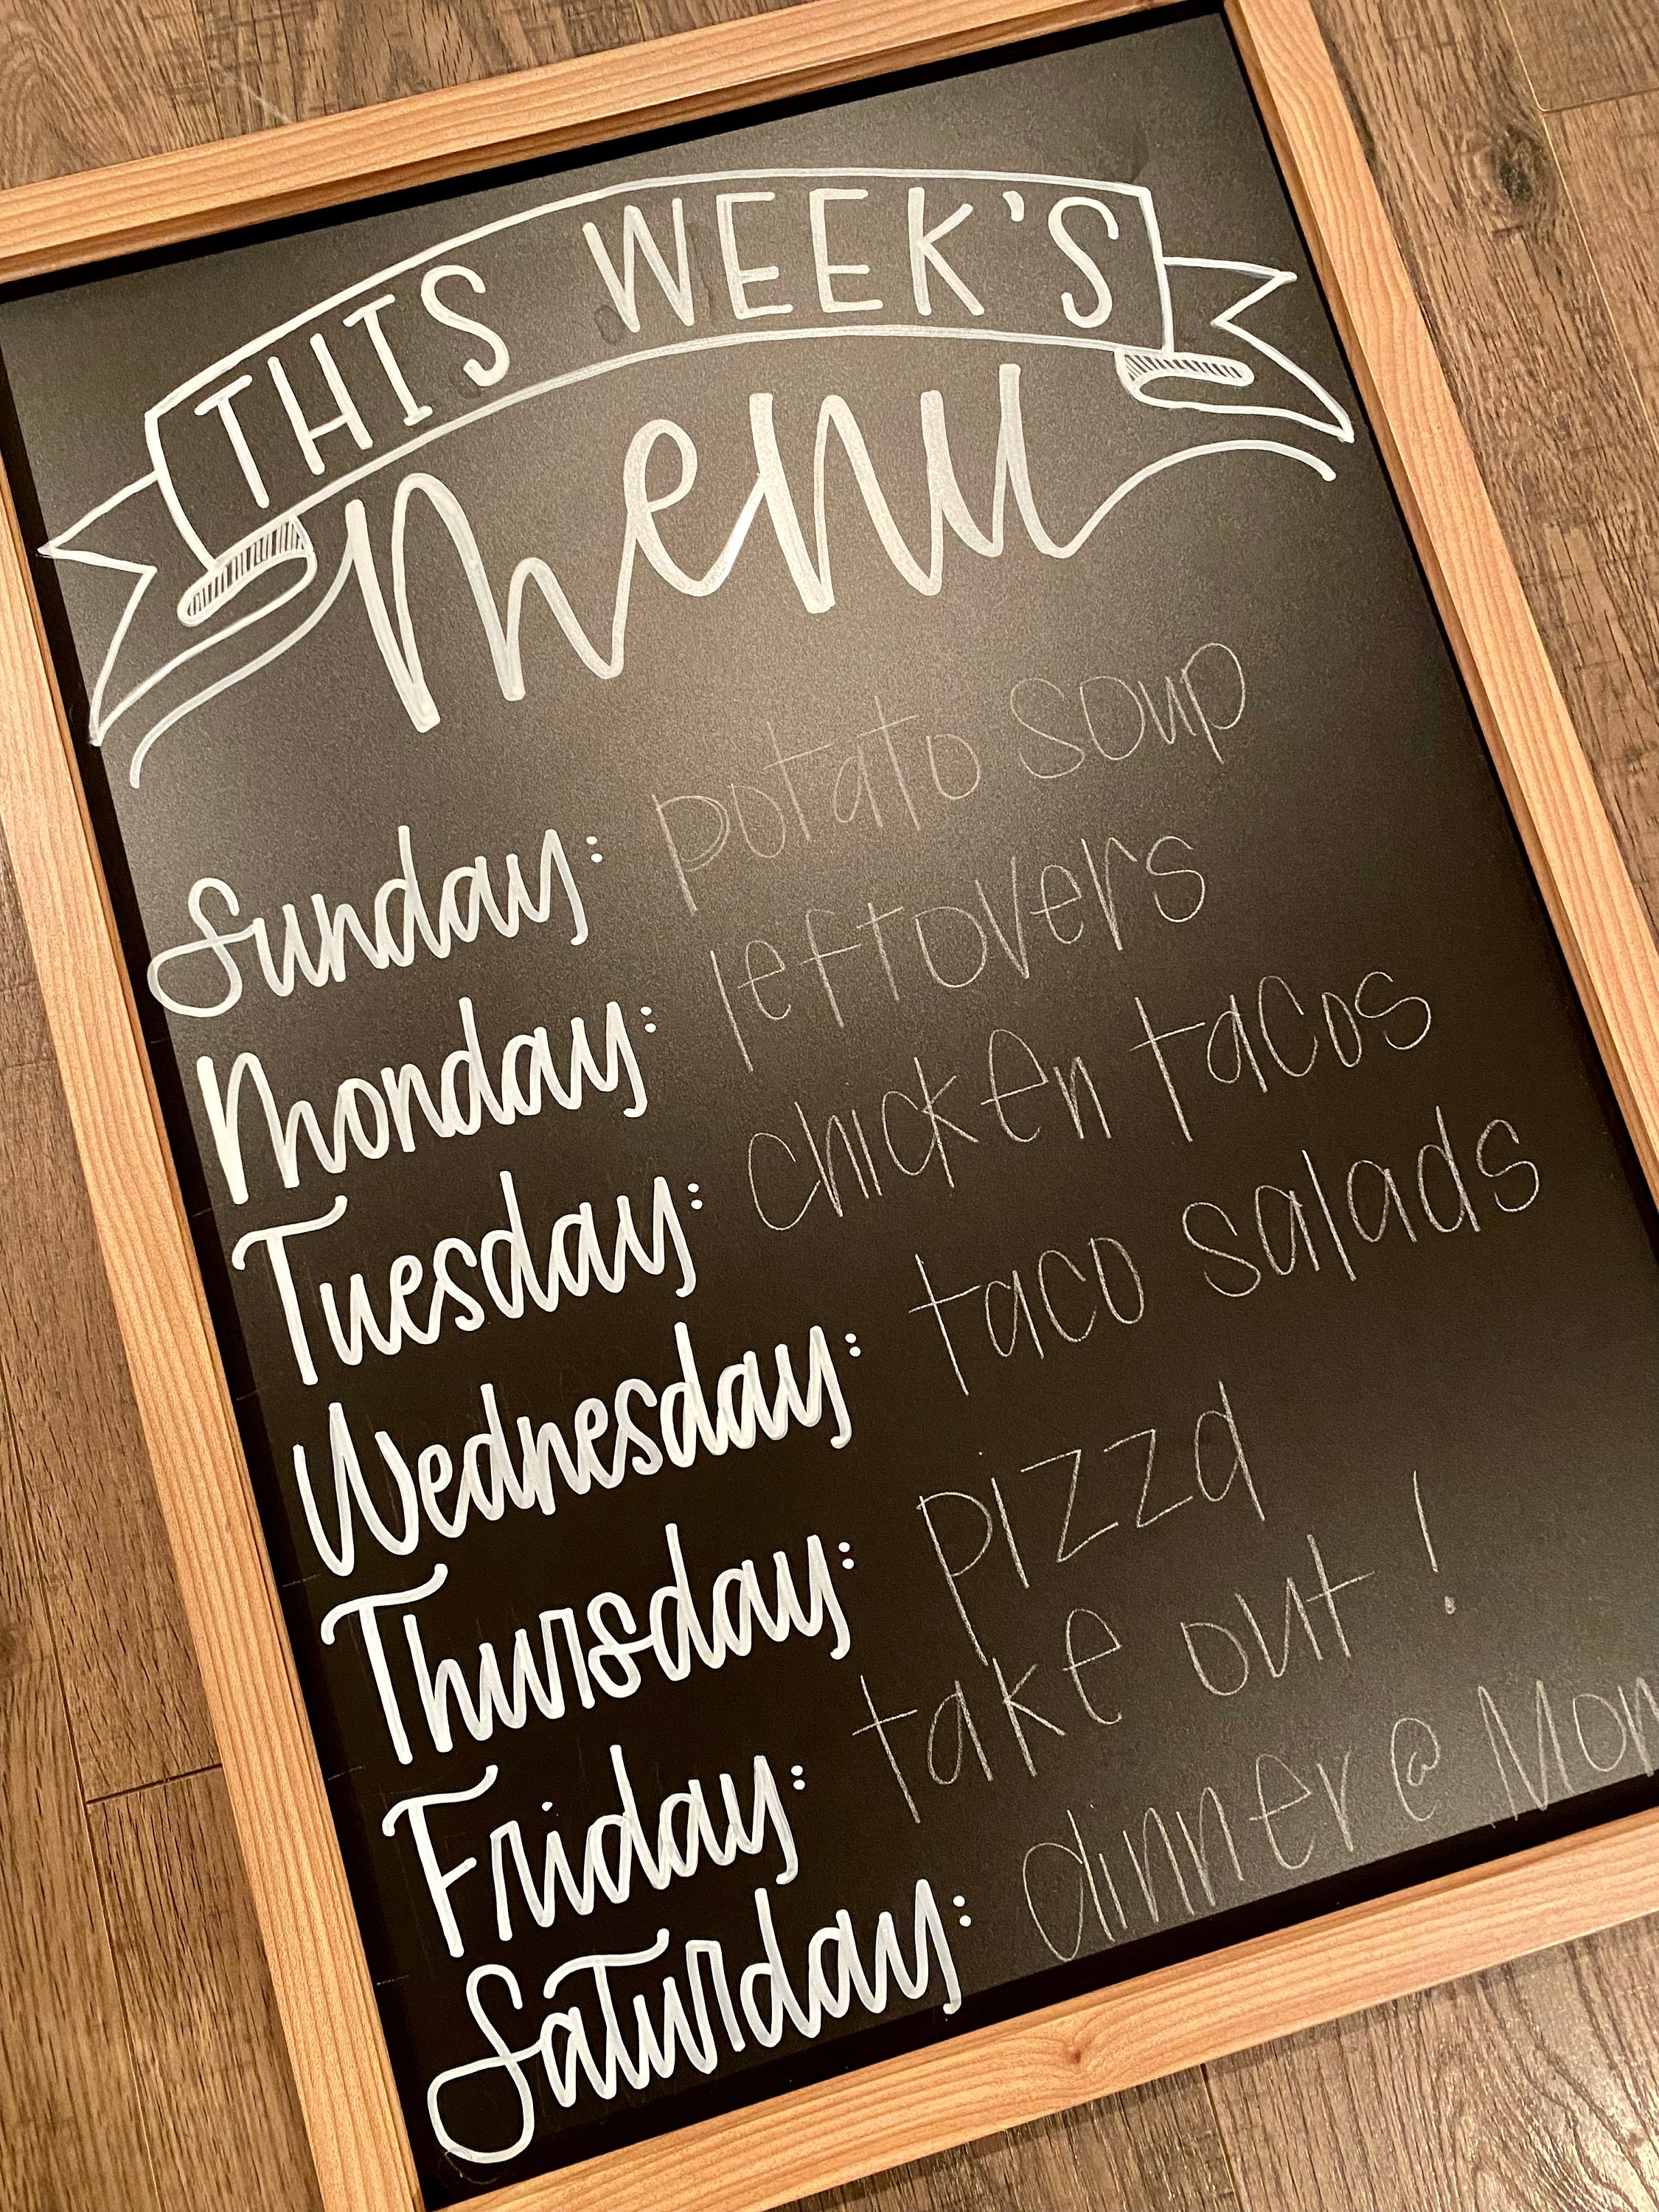 THIS WEEK'S
menu
Sunday: potato soup
Monday: leftovers
Tuesday: chicken tacos
Wednesday: taco salads
Thursday: pizza
Friday: take out !
Saturday: dinner @